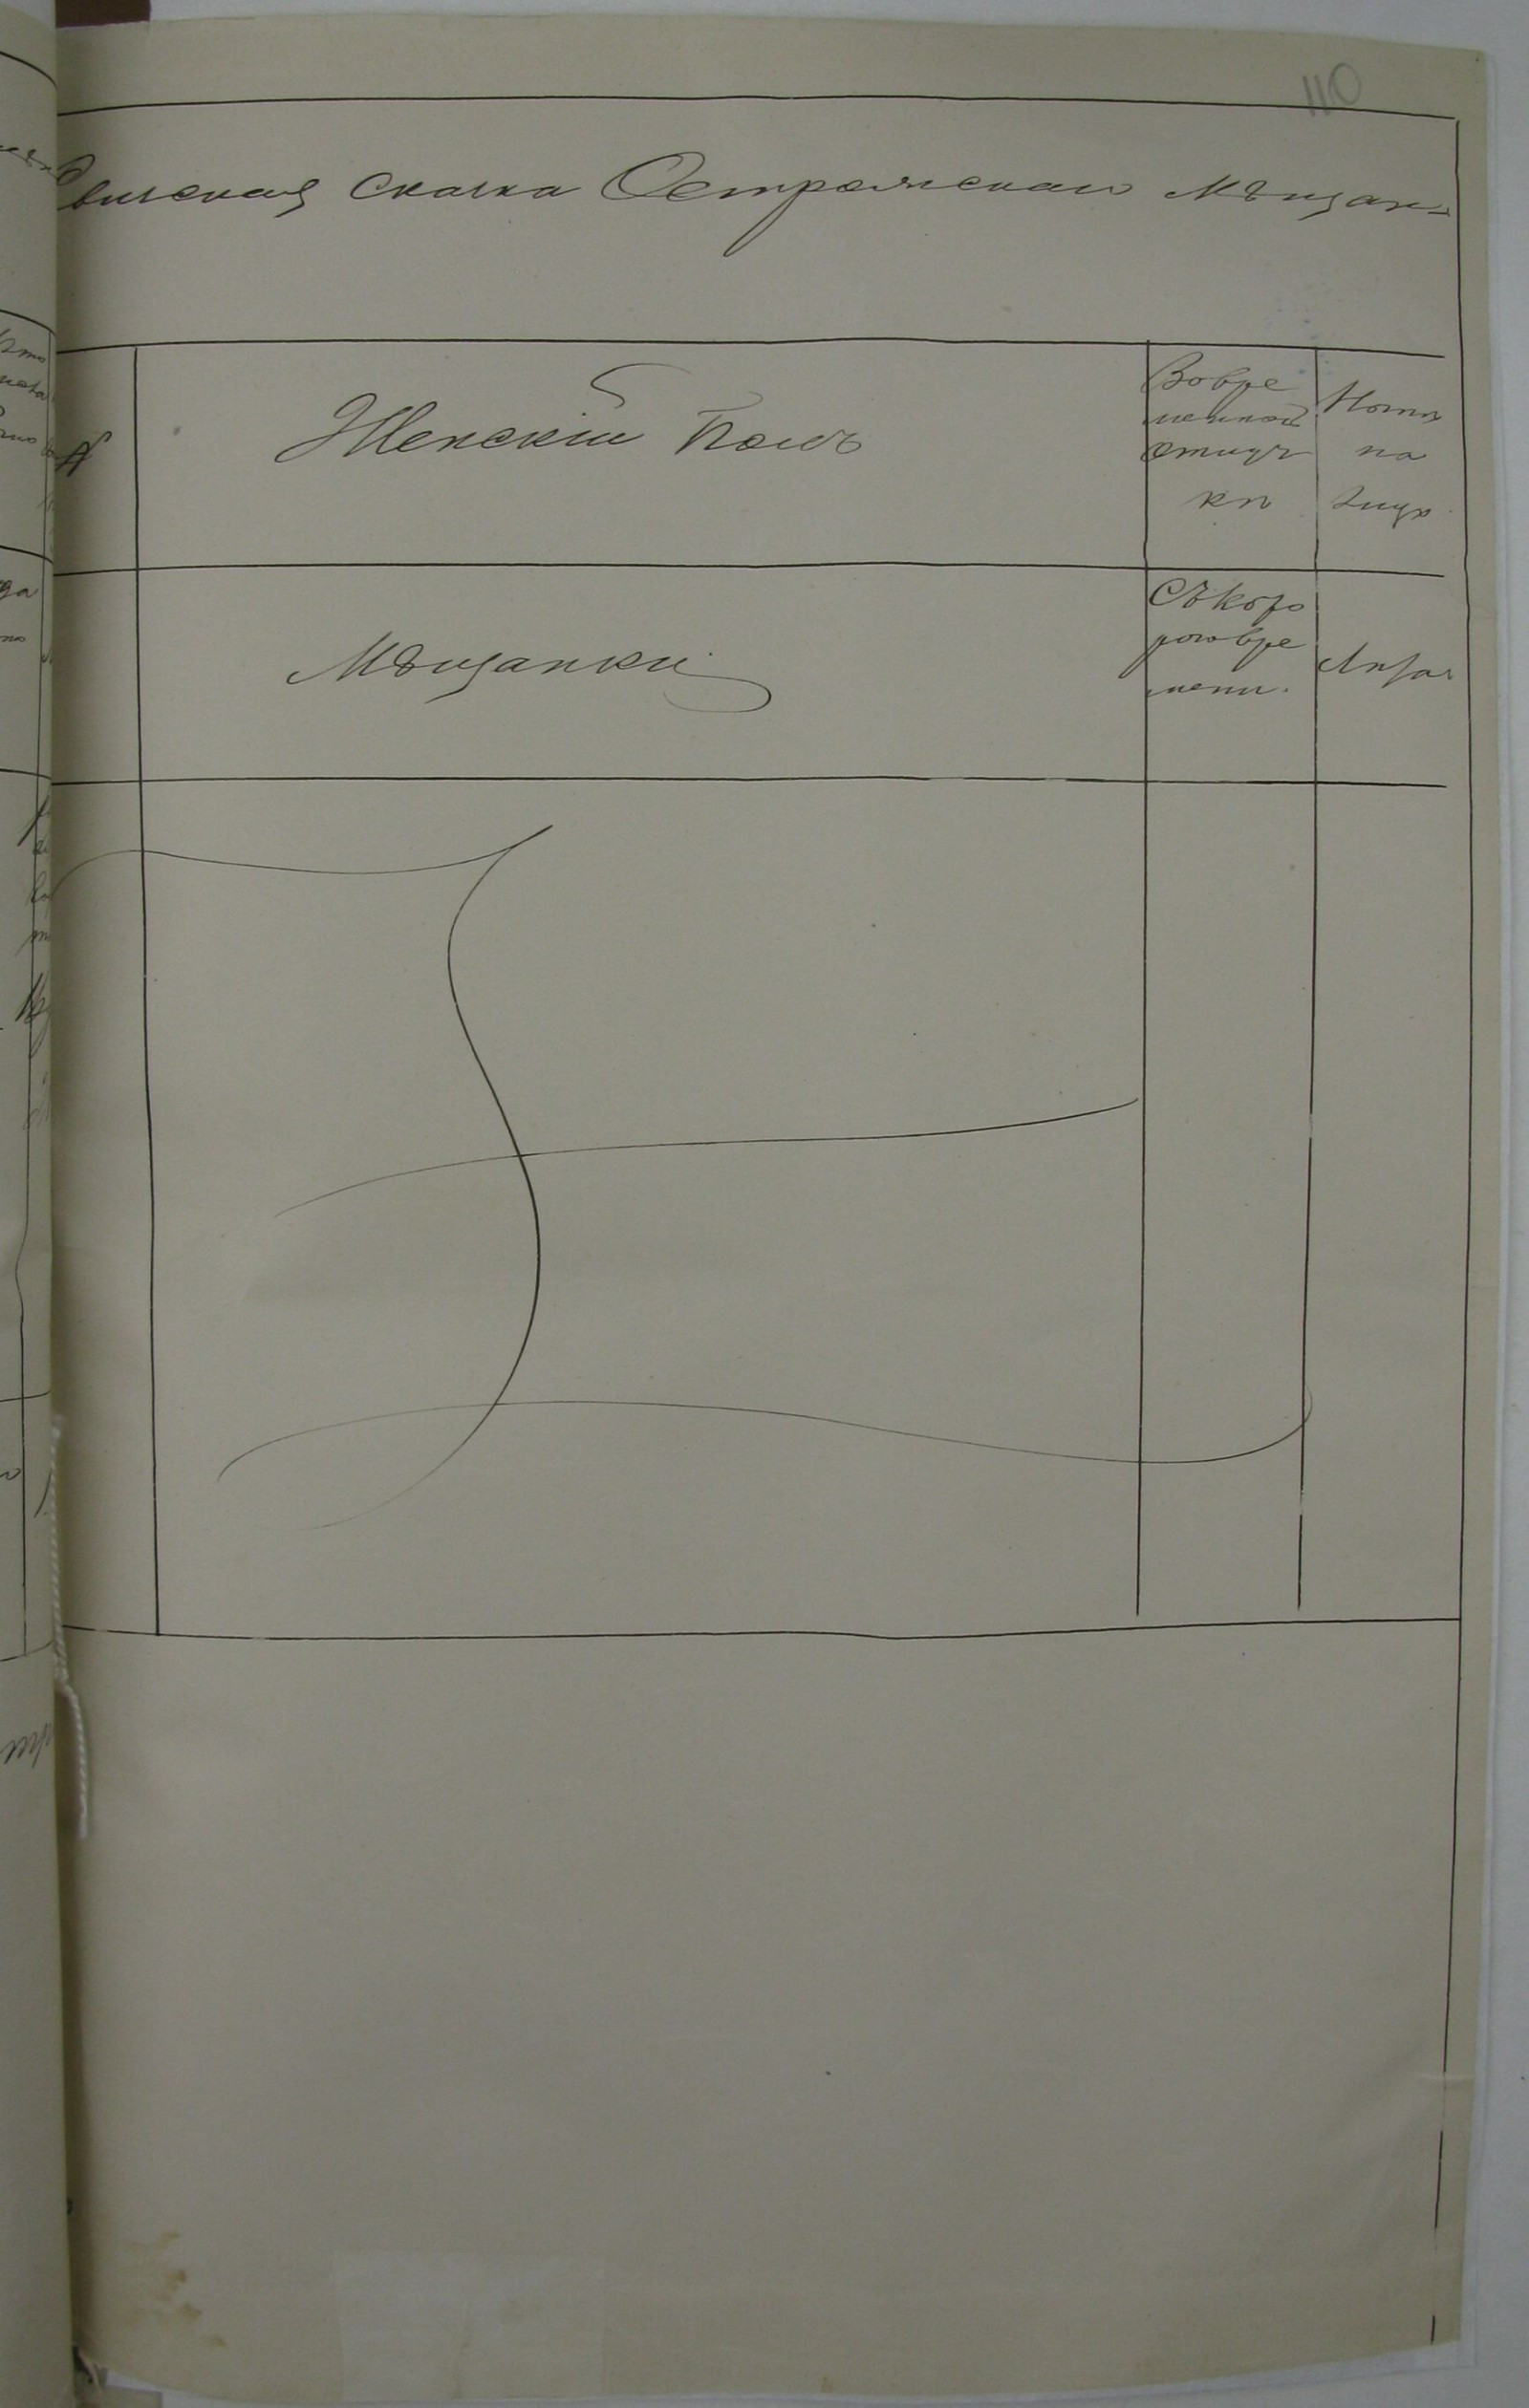 110
визская Сказка Острожскаго Мѣщан-
№
Женскій Полъ
Вовре
менной
отлуч
кѣ
Ныне
на
лицо
Мѣщанки
Съкото
раговре
мени.
Лѣта